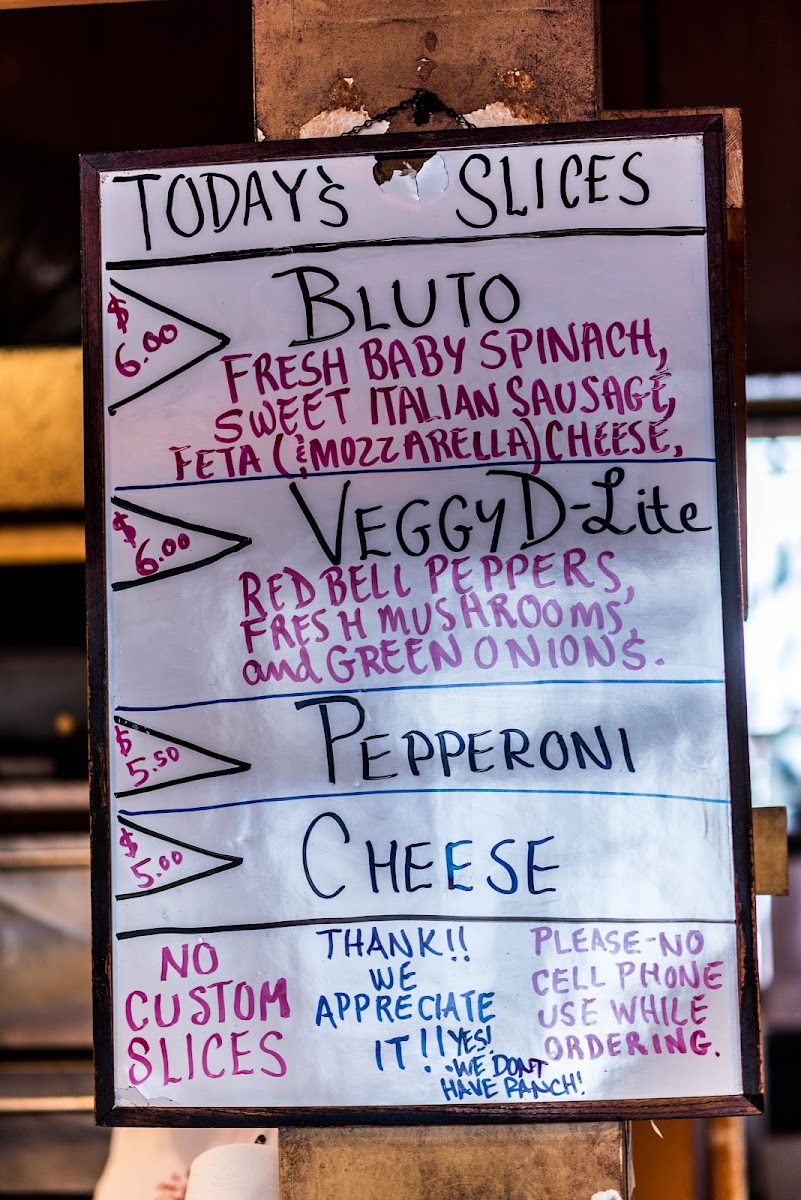 TODAY'S SLICES
$6.00
BLUTO
FRESH BABY SPINACH,
SWEET ITALIAN SAUSAGE,
FETA (& MOZZARELLA) CHEESE,
$6.00
VEGGY D-Lite
RED BELL PEPPERS,
FRESH MUSHROOMS,
and GREEN ONIONS.
$5.50
PEPPERONI
$5.00
CHEESE
NO
CUSTOM
SLICES
THANK!!
WE
APPRECIATE
IT!!
YES!
WE DON'T
HAVE RANCH!
PLEASE-NO
CELL PHONE
USE WHILE
ORDERING.